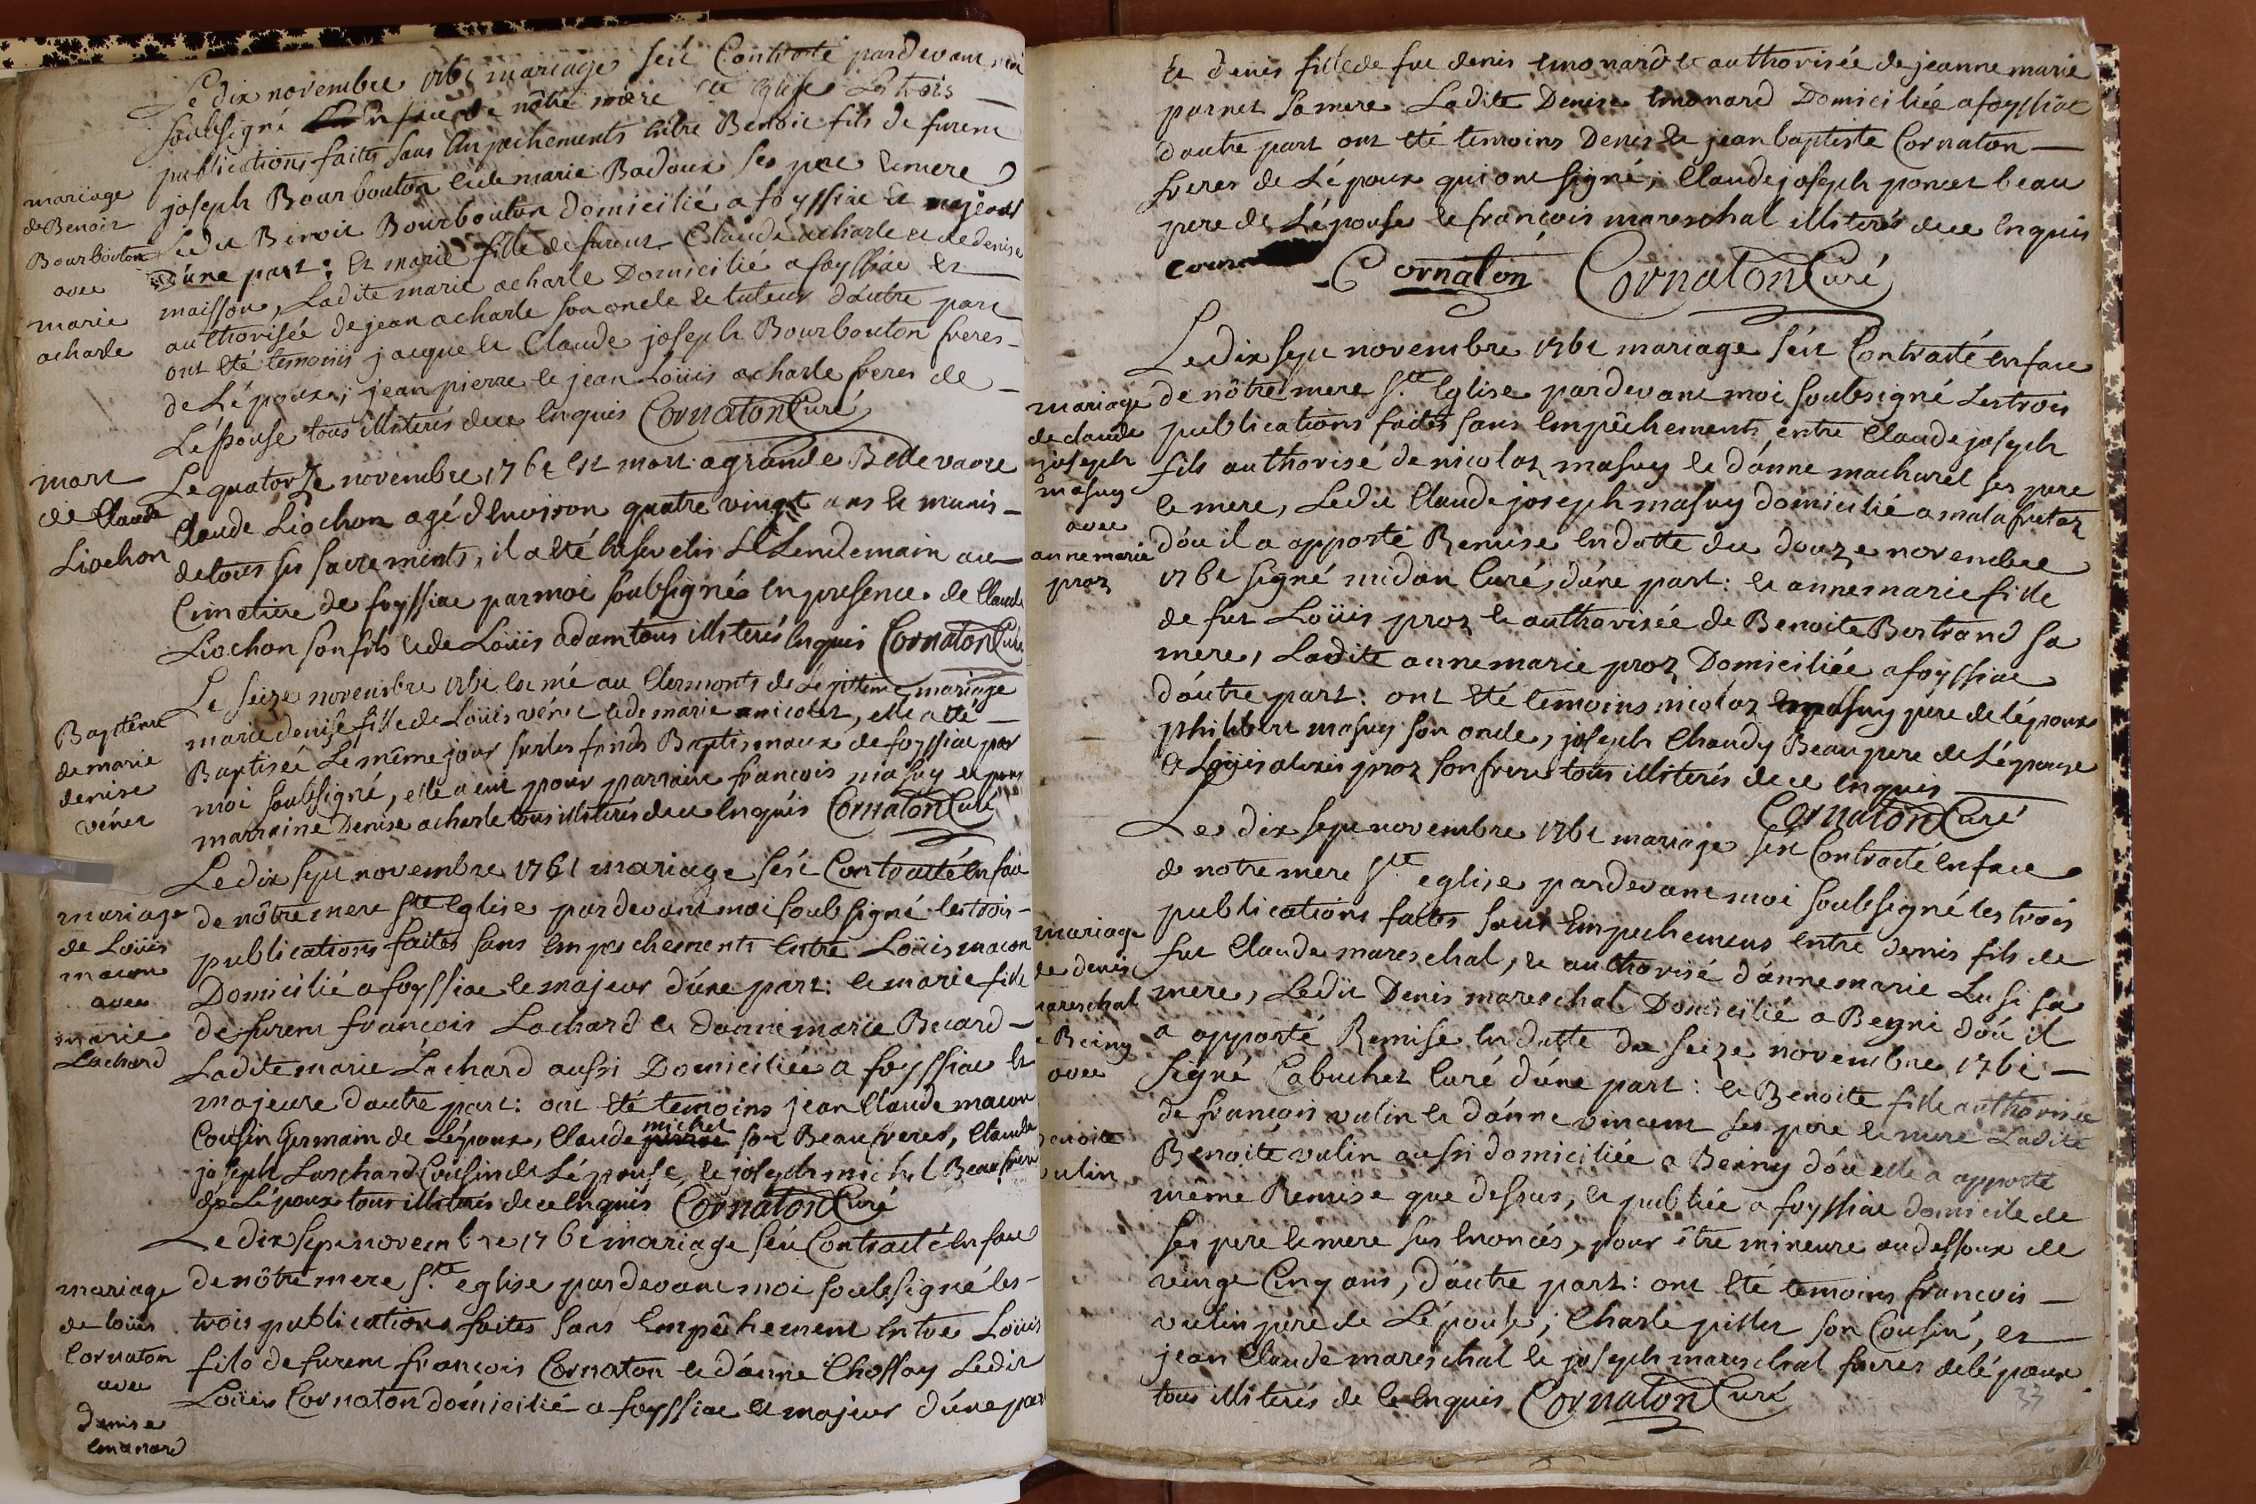 Le dix novembre 1761 mariage s'ést Contracté pardevant moi
soubsigné En face de nôtre mere Ste Eglise Les trois
publications faites sans Empechements Entre Benoit fils de furent
joseph Bourbouton et de marie Badoux ses pere et mere
Ledit Benoit Bourbouton Domicilié a foyssiac et majeur
D'une part; Et marie fille de furent Claude acharle et de denise
maisson, Ladite marie acharle Domicilié a foyssiac et
authorisée de jean acharle son oncle et tuteur d'autre part
ont été temoins jacque et Claude joseph Bourbouton freres
de L'époux; jean pierre et jean Loüis acharle freres de
L'épouse tous illiterés de ce Enquis Cornaton Curé
mariage
de Benoit
Bourbouton
avec
marie
acharle
Le quatorze novembre 1761 Est mort a grande Bellevavre
Claude Liochon agé d'Environ quatre vingt ans et munis
de tous ses sacrements, il a été Ensevelis Le Lendemain au
Cimetiere de foyssiac par moi soubsigné En presence de Claude
Liochon son fils et de Loüis adam tous illiterés Enquis Cornaton Curé
mort
de Claude
Liochon
Le seize novembre 1761 Est né au Clermonts de Légitteme mariage
marie denise fille de Loüis vénet et de marie nicolet, elle a été
Baptisée Le même jour sur les fonds Baptismaux de foyssiac par
moi soubsigné, elle a eut pour parrain francois masuy et pour
marraine Denise acharle tous illiterés de ce Enquis Cornaton Curé
Baptême
de marie
denise
vénet
Le dix sept novembre 1761 mariage s'ést Contracté En face
de nôtre mere Ste Eglise pardevant moi soubsigné les trois
publications faites sans Empechements Entre Loüis macon
Domicilié a foyssiac et majeur d'une part: et marie fille
de furent francois Lachard et d'anne marie Becard
Ladite marie Lachard aussi Domiciliée a foyssiac Et
majeure d'autre part: ont été temoins jean Claude macon
Cousin Germain de L'époux, Claude michel son Beaufreres, Claude
joseph Laschard Cousin de L'épouse, et joseph michel Beaufrere
de L'époux tous illiterés de ce Enquis Cornaton Curé
mariage
de Loüis
macon
avec
marie
Lachard
Le dix sept novembre 1761 mariage s'ést Contracté En face
de nôtre mere Ste eglise pardevant moi soubsigné les
trois publications faites sans Empêchement Entre Loüis
fils de furent francois Cornaton et d'anne Chossay Ledit
Loüis Cornaton domicilié a foyssiac et majeur d'une part
mariage
de loüis
Cornaton
avec
denise
Emonard
Et denis fille de fut denis Emonard et authorisée de jeanne marie
parnet sa mere Ladite Denise Emonard Domiciliée a foyssiac
d'autre part ont été temoins Denis et jean baptiste Cornaton
freres de L'époux qui ont signé; Claude joseph poncet beau
pere de L'épouse et francois mareschal illiterés de ce Enquis
Cornaton Cornaton Curé
Le dix sept novembre 1761 mariage s'ést Contracté En face
de nôtre mere Ste Eglise pardevant moi soubsigné Les trois
publications faites sans Empêchements entre Claude joseph
fils authorisé de nicolaz masuy et d'anne macharet ses pere
et mere, Ledit Claude joseph masuy domicilié a malafretaz
d'ou il a apporté Remise En datte du douze novembre
1761 signé midan Curé, d'une part: et anne marie fille
de fut Loüis proz et authorisée de Benoite Bertrand sa
mere, Ladite anne marie proz Domiciliée a foyssiac
d'autre part: ont été temoins nicolaz masuy pere de l'époux
philibert masuy son oncle, joseph Chaudy Beau pere de L'épouse
et Loüis alexis proz son frere tous illiterés de ce enquis
Cornaton Curé
mariage
de claude
joseph
masuy
avec
anne marie
proz
Le dix sept novembre 1761 mariage s'ést Contracté En face
de notre mere Ste eglise pardevant moi soubsigné les trois
publications faites sans Empechemens entre denis fils de
fut Claude mareschal, et authorisé d'anne marie Lusi sa
mere, Ledit Denis mareschal Domicilié a Beyni d'ou il
a apporté Remise En datte du seize novembre 1761
signé Cabuchet Curé d'une part: et Benoite fille authorisée
de francois vulin et d'anne vincent ses pere et mere Ladite
Benoite vulin aussi domiciliée a Beiny d'ou elle a apporté
même Remise que dessus, et publiée a foyssiac domicile de
ses pere et mere sus Enoncés, pour être mineure audessoux de
vingt Cinq ans, d'autre part: ont été temoins francois
vulin pere de L'épouse; Charle pillet son Cousin, et
jean Claude mareschal et joseph mareschal freres de l'époux
tous illiterés de ce Enquis Cornaton Curé
mariage
de denis
mareschal
de Beiny
avec
benoite
vulin
37